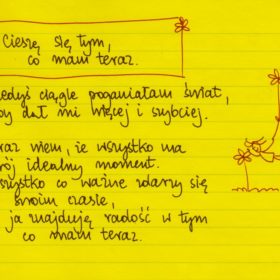 Cieszę się tym,
co mam teraz.
ciągle poganiałam świat,
dał mi więcej i szybciej.
wiem, że wszystko ma
idealny moment.
wszystko co ważne zdarzy się
swoim czasie,
ja znajduję radość w tym
co mam teraz.